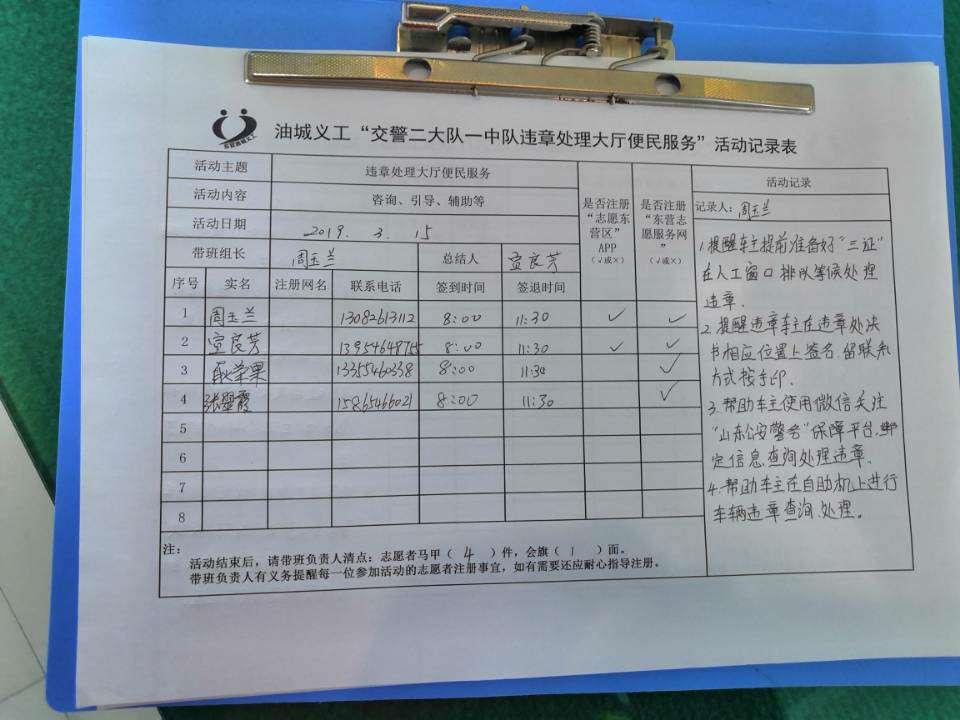 油城义工“交警二大队一中队违章处理大厅便民服务”活动记录表
活动主题 违章处理大厅便民服务
活动内容 咨询、引导、辅助等
活动日期 2019. 3. 15
带班组长 周玉兰 总结人 宣良芳
是否注册“志愿东营区”APP（√或×）
是否注册“东营志愿服务网”（√或×）
序号 实名 注册网名 联系电话 签到时间 签退时间
1 周玉兰 13082613112 8:00 11:30 ✓ ✓
2 宣良芳 8:00 11:30 ✓ ✓
3 13355460338 8:00 11:30 ✓
4 15865466021 8:00 11:30 ✓
5
6
7
8
注：
活动结束后，请带班负责人清点：志愿者马甲（ 4 ）件，会旗（ 1 ）面。
带班负责人有义务提醒每一位参加活动的志愿者注册事宜，如有需要还应耐心指导注册。
活动记录
记录人：周玉兰
1.提醒车主提前准备好“三证”
在人工窗口排队等候处理
违章.
2.提醒违章车主在违章处决
书相应位置上签名.留联系
方式按手印.
3.帮助车主使用微信关注
“山东公安警务”保障平台.绑
定信息.查询处理违章.
4.帮助车主在自助机上进行
车辆违章查询.处理。